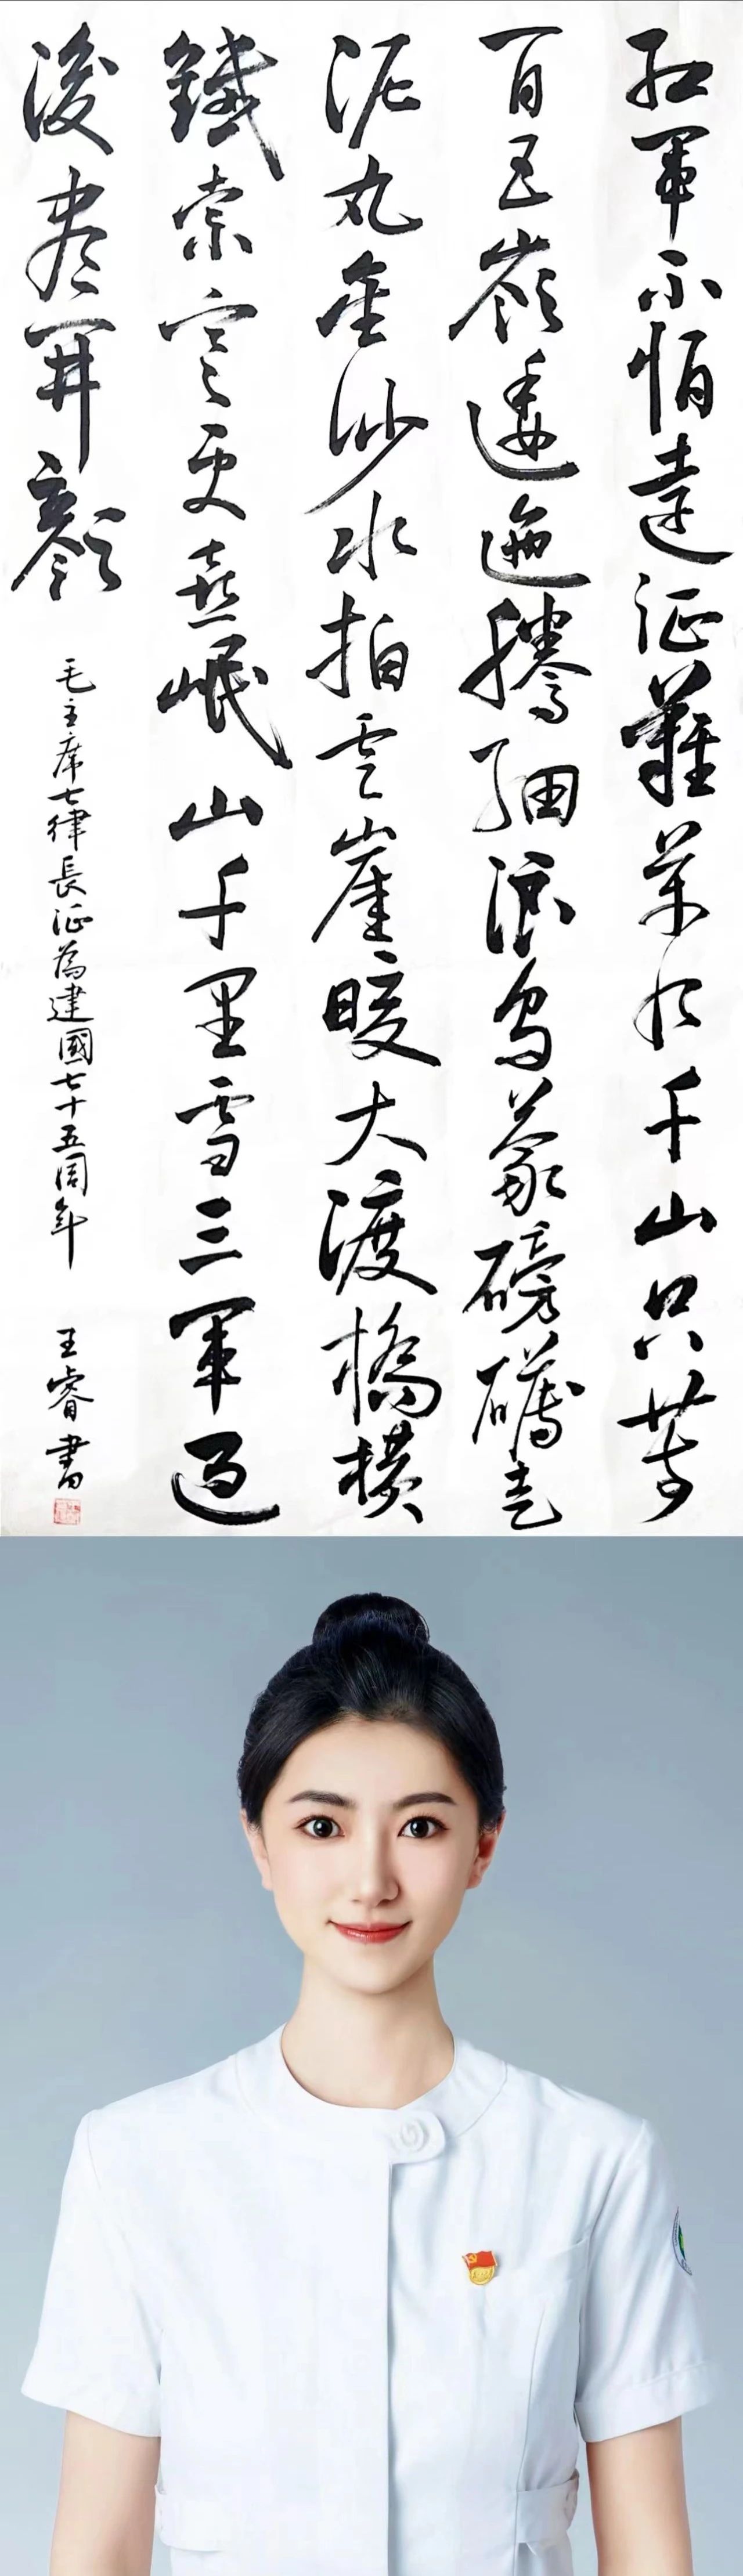 红军不怕遠征難萬水千山只等
百五嶺逶迤騰细浪烏蒙磅礴走
泥丸金沙水拍雲崖暖大渡橋橫
鐵索寒更喜岷山千里雪三軍過
後盡開顏
毛主席七律長征為建國七十五周年
王睿書